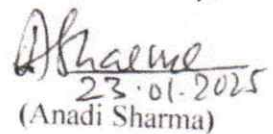 ASharma
23.01.2025
(Anadi Sharma)